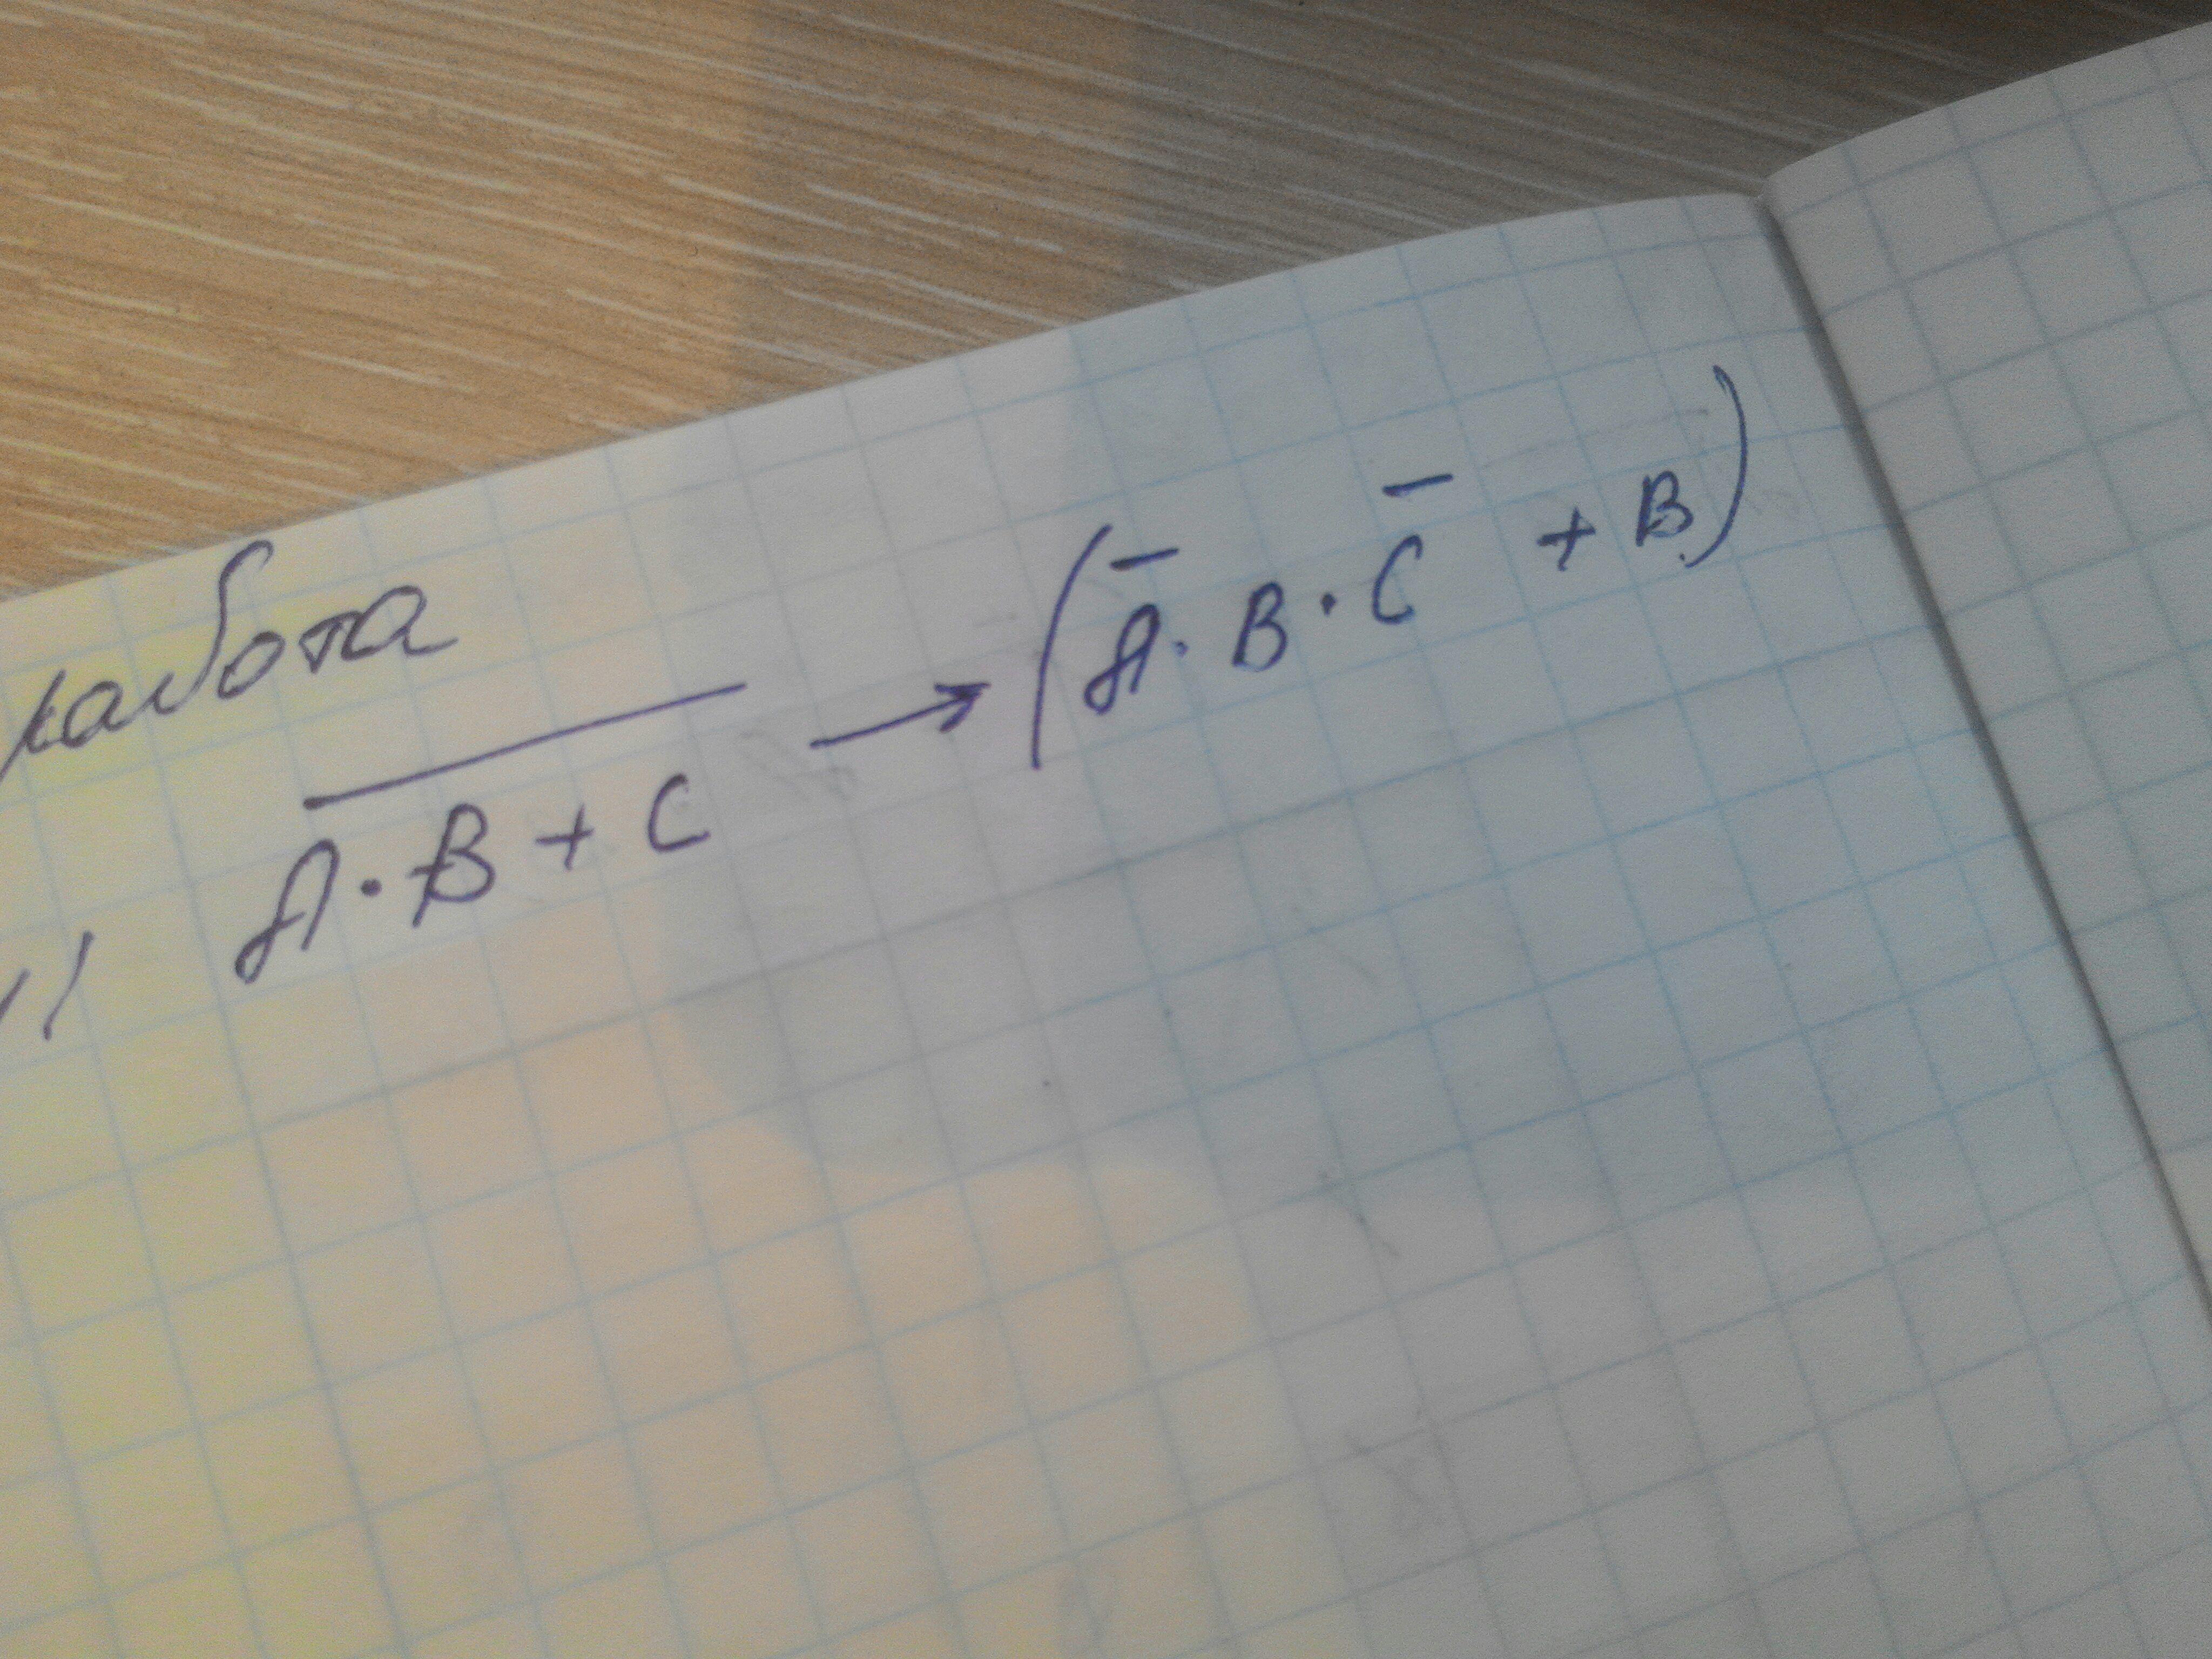 работа
1) \overline{A · B + C} → (A̅ · B · C̅ + B)